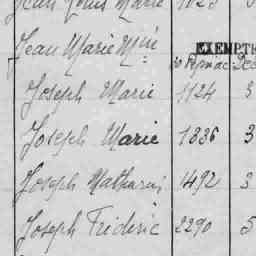 Jean Louis Marie 1823
Jean Marie Mⁱᵉ EXEMPTÉ
Joseph Marie 1124 3
Joseph Marie 1836 3
Joseph Mathurin 1492 3
Joseph Frideric 2290 5